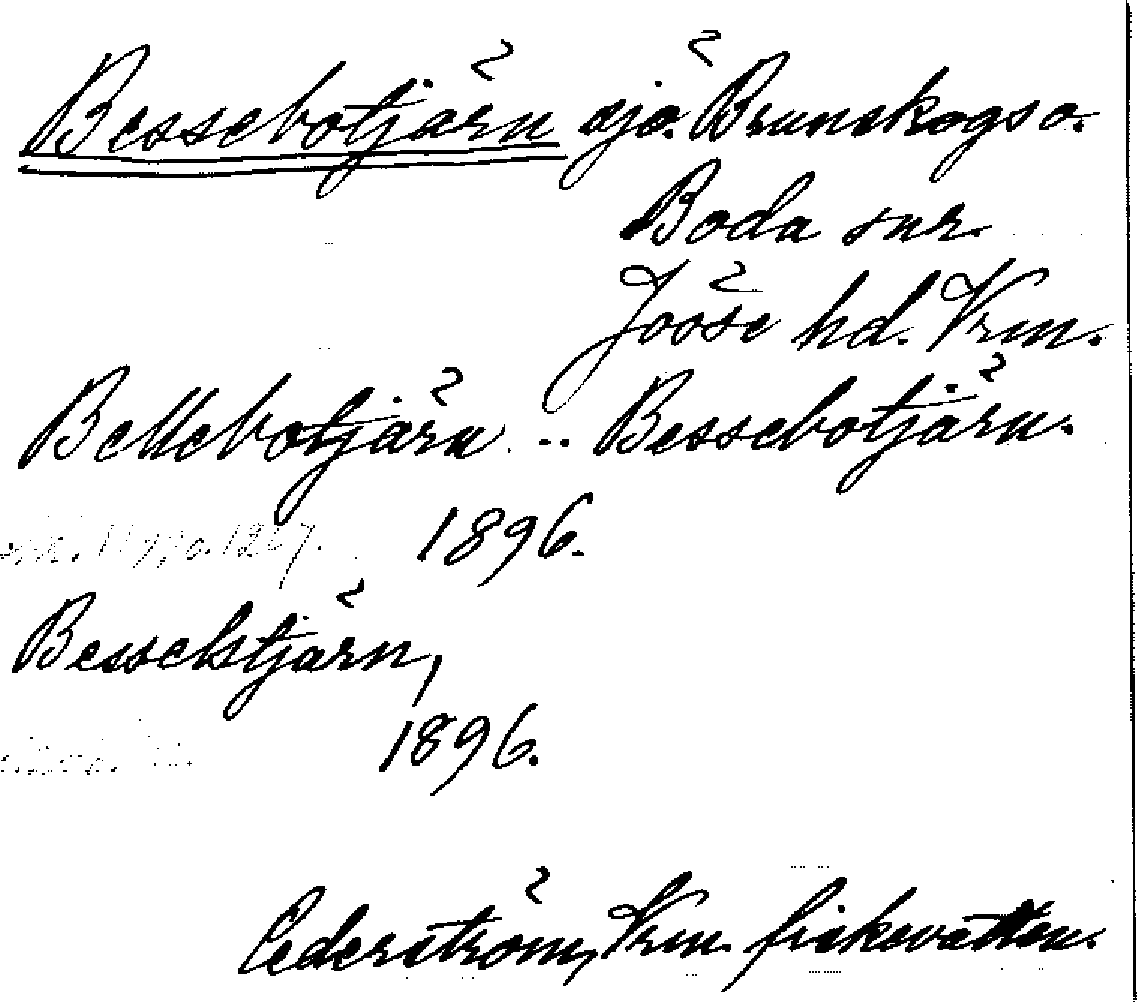 Bessebotjärn sjö. Brunskogs o.
Boda snr
Jösse hd. Vrm.
Bellebotjärn .. Bessebotjärn.
1896.
Besselstjärn,
1896.
Cederström, Vrm. fiskevatten.